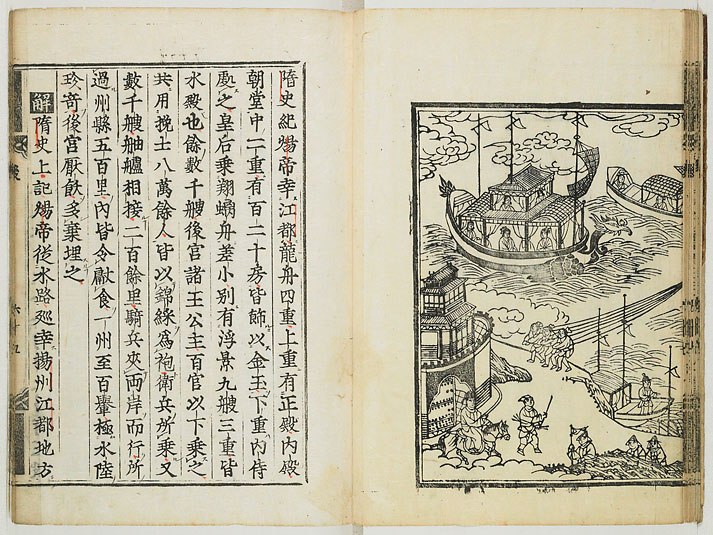 隋史紀煬帝幸江都龍舟四重上重有正殿內殿
朝堂中二重有百二十房皆飾以金玉下重內侍
處之皇后乘翔螭舟差小別有浮景九艘三重皆
水殿也餘數千艘後宮諸王公主百官以下乘之
共用挽士八萬餘人皆以錦綵為袍衛兵所乘又
數千艘舳艫相接二百餘里騎兵夾兩岸而行所
過州縣五百里內皆令獻食一州至百轝極水陸
珍奇後宮厭飫多棄埋之
解隋史上記煬帝從水路廵幸揚州江都地方